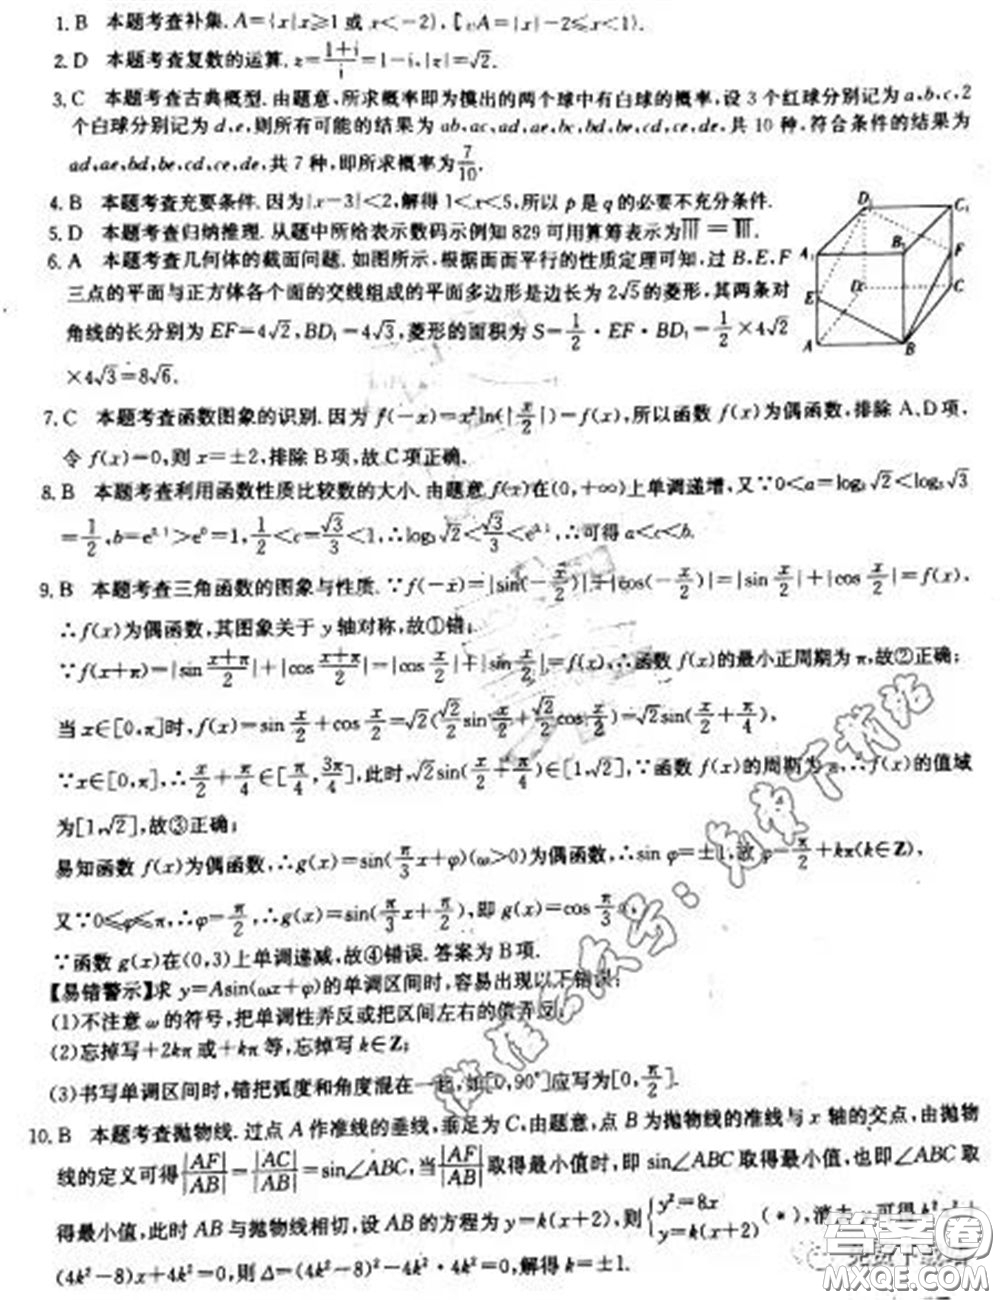 1. B 本题考查补集. A={x|x≥1 或 x<-2}, ∁ᵤA={x|-2≤x<1}.
2. D 本题考查复数的运算. z=(1+i)/i=1-i, |z|=√2.
3. C 本题考查古典概型. 由题意, 所求概率即为摸出的两个球中有白球的概率, 设 3 个红球分别记为 a,b,c, 2
个白球分别记为 d,e, 则所有可能的结果为 ab,ac,ad,ae,bc,bd,be,cd,ce,de, 共 10 种, 符合条件的结果为
ad,ae,bd,be,cd,ce,de, 共 7 种, 即所求概率为 7/10.
4. B 本题考查充要条件. 因为|x-3|<2, 解得 1<x<5, 所以 p 是 q 的必要不充分条件.
5. D 本题考查归纳推理. 从题中所给表示数码示例知 829 可用算筹表示为
6. A 本题考查几何体的截面问题. 如图所示, 根据面面平行的性质定理可知, 过 B、E、F
三点的平面与正方体各个面的交线组成的平面多边形是边长为 2√5 的菱形, 其两条对
角线的长分别为 EF=4√2, BD₁=4√3, 菱形的面积为 S=1/2·EF·BD₁=1/2×4√2
×4√3=8√6.
D₁ C₁ A₁ B₁ F E D C A B
7. C 本题考查函数图象的识别. 因为 f(-x)=x²ln(|x/2|)=f(x), 所以函数 f(x)为偶函数, 排除 A、D 项,
令 f(x)=0, 则 x=±2, 排除 B 项, 故 C 项正确.
8. B 本题考查利用函数性质比较数的大小. 由题意 f(x)在(0,+∞)上单调递增, 又∵0<a=log₃√2<log₃√3
=1/2, b=e^0.1>e⁰=1, 1/2<c=√3/3<1, ∴log₃√2<√3/3<e^0.1, ∴可得 a<c<b.
9. B 本题考查三角函数的图象与性质. ∵f(-x)=|sin(-x/2)|+|cos(-x/2)|=|sin x/2|+|cos x/2|=f(x),
∴f(x)为偶函数, 其图象关于 y 轴对称, 故①错;
∵f(x+π)=|sin (x+π)/2|+|cos (x+π)/2|=|cos x/2|+|sin x/2|=f(x), ∴函数 f(x)的最小正周期为 π, 故②正确;
当 x∈[0,π]时, f(x)=sin x/2+cos x/2=√2(√2/2 sin x/2+√2/2 cos x/2)=√2sin(x/2+π/4),
∵x∈[0,π], ∴x/2+π/4∈[π/4,3π/4], 此时, √2sin(x/2+π/4)∈[1,√2], ∵函数 f(x)的周期为 π, ∴f(x)的值域
为[1,√2], 故③正确;
易知函数 f(x)为偶函数, ∴g(x)=sin(π/3 x+φ)(ω>0)为偶函数, ∴sin φ=±1, 故 φ=π/2+kπ(k∈Z),
又∵0≤φ≤π, ∴φ=π/2, ∴g(x)=sin(π/3 x+π/2), 即 g(x)=cos π/3 x,
∵函数 g(x)在(0,3)上单调递减, 故④错误. 答案为 B 项.
【易错警示】求 y=Asin(ωx+φ)的单调区间时, 容易出现以下错误:
(1)不注意 ω 的符号, 把单调性弄反或把区间左右的值弄反;
(2)忘掉写+2kπ 或+kπ 等, 忘掉写 k∈Z;
(3)书写单调区间时, 错把弧度和角度混在一起, 如[0,90°]应写为[0,π/2].
10. B 本题考查抛物线. 过点 A 作准线的垂线, 垂足为 C, 由题意, 点 B 为抛物线的准线与 x 轴的交点, 由抛物
线的定义可得|AF|/|AB|=|AC|/|AB|=sin∠ABC, 当|AF|/|AB|取得最小值时, 即 sin∠ABC 取得最小值, 也即∠ABC 取
得最小值, 此时 AB 与抛物线相切, 设 AB 的方程为 y=k(x+2), 则{y²=8x y=k(x+2) (*), 消去 y 可得 k²x²+
(4k²-8)x+4k²=0, 则 Δ=(4k²-8)²-4k²·4k²=0, 解得 k=±1.
答案圈
MXQE.COM